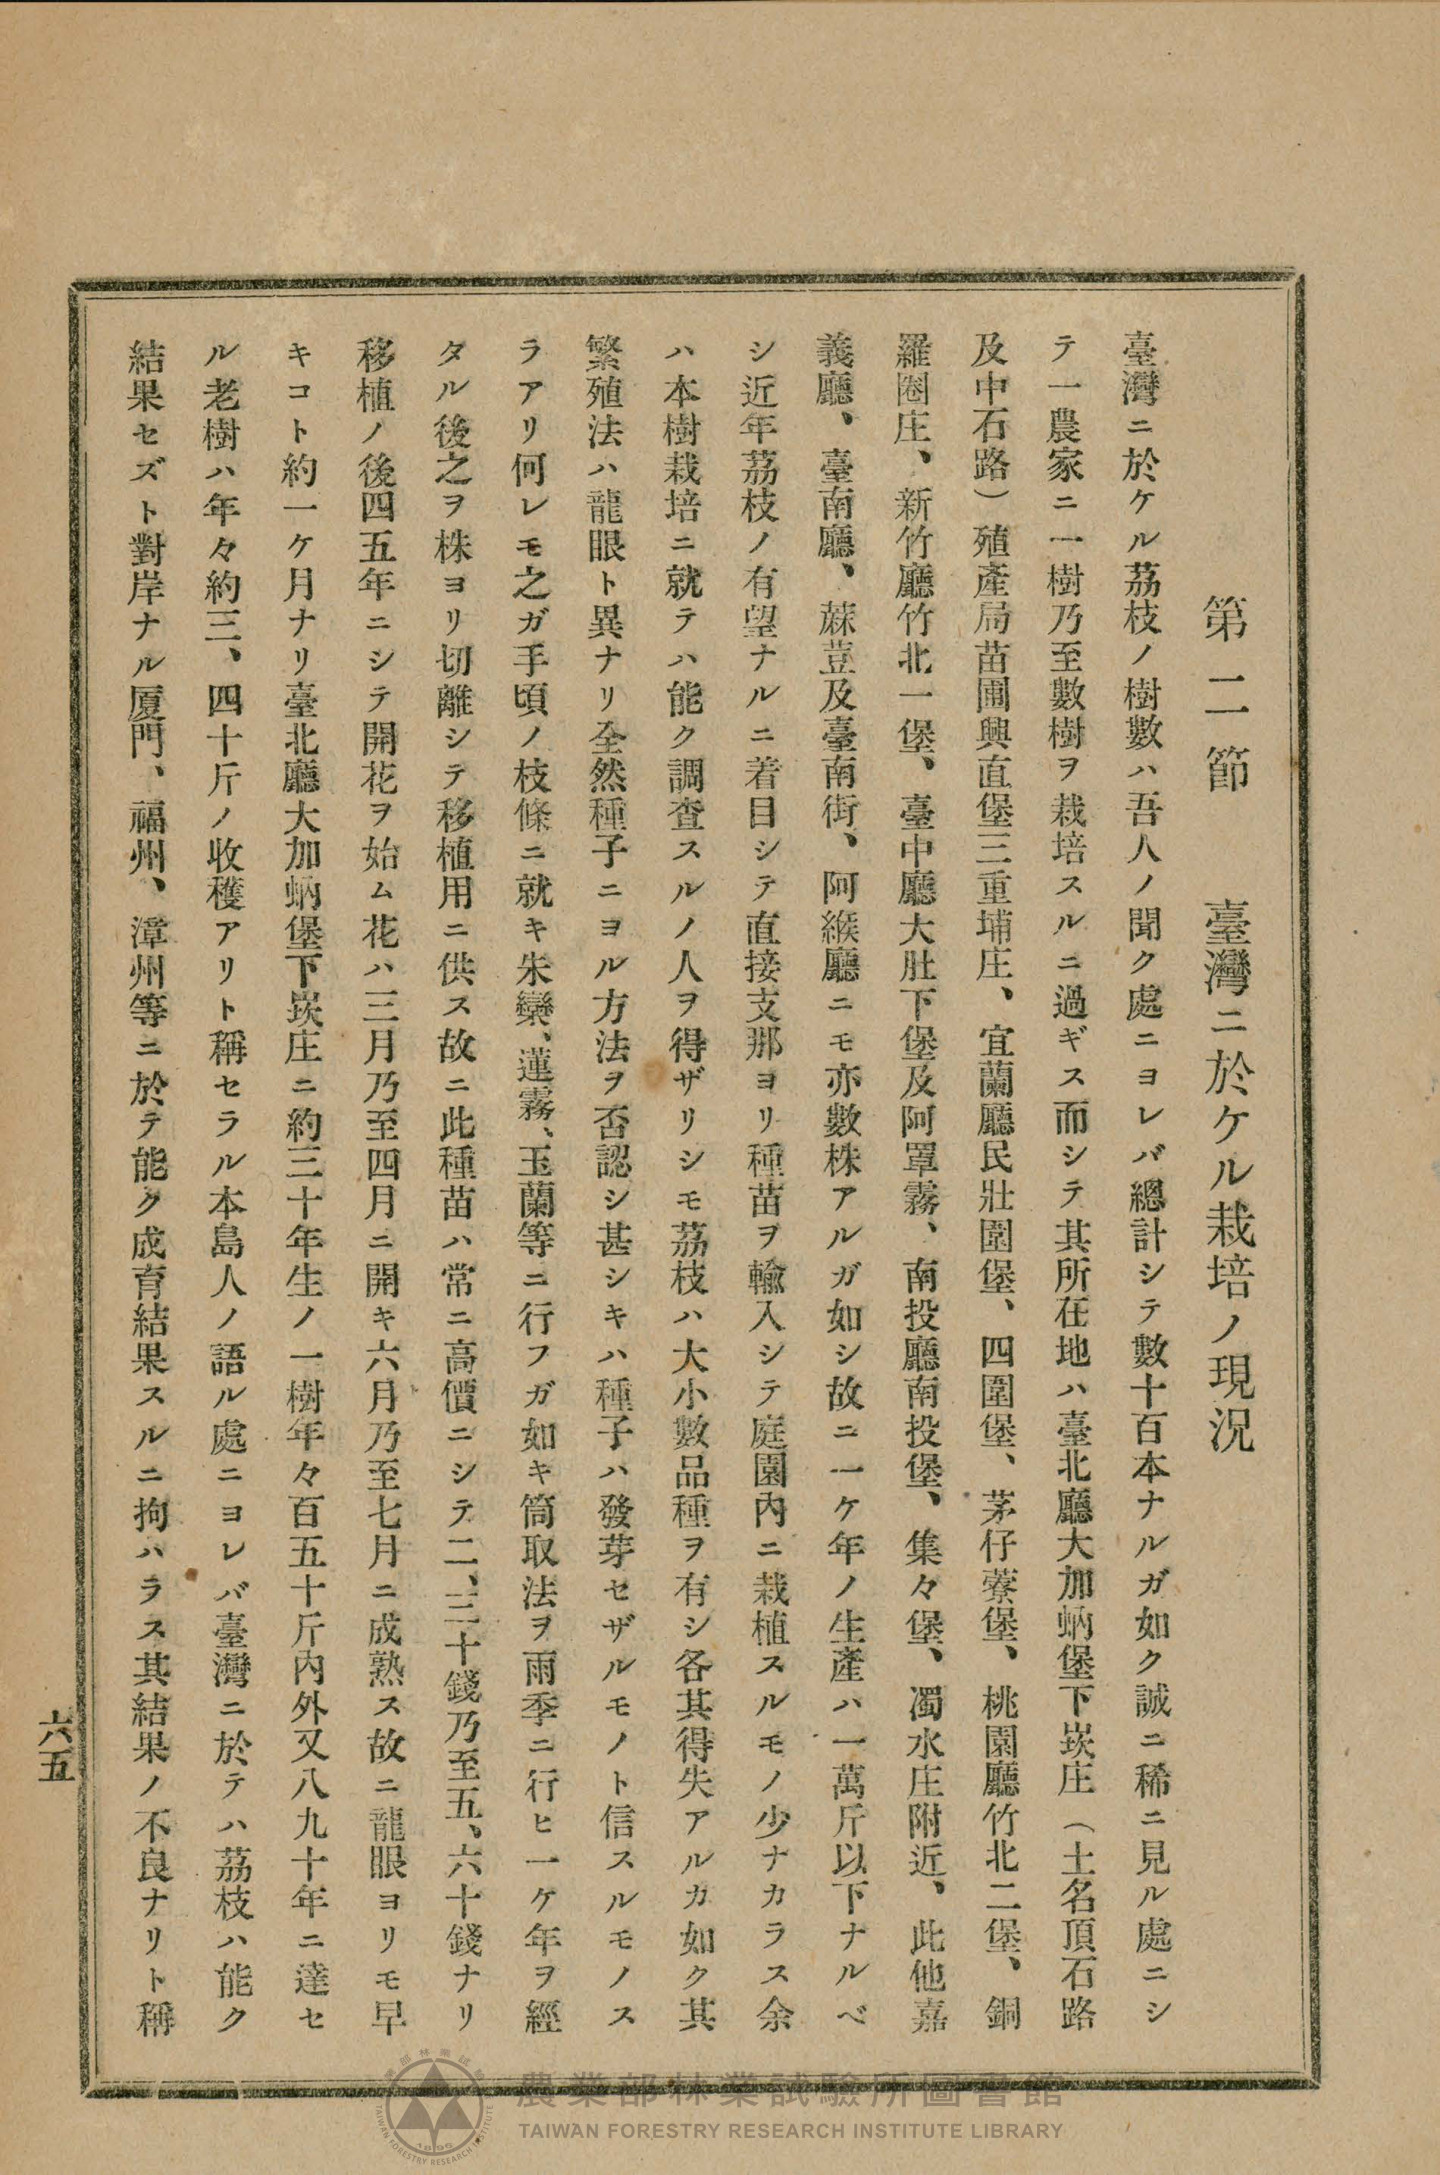 第二節　臺灣ニ於ケル栽培ノ現況
臺灣ニ於ケル茘枝ノ樹數ハ吾人ノ聞ク處ニヨレバ總計シテ數十百本ナルガ如ク誠ニ稀ニ見ル處ニシ
テ一農家ニ一樹乃至數樹ヲ栽培スルニ過ギス而シテ其所在地ハ臺北廳大加蚋堡下崁庄（土名頂石路
及中石路）殖產局苗圃興直堡三重埔庄、宜蘭廳民壯圍堡、四圍堡、茅仔藔堡、桃園廳竹北二堡、銅
羅圈庄、新竹廳竹北一堡、臺中廳大肚下堡及阿罩霧、南投廳南投堡、集々堡、濁水庄附近、此他嘉
義廳、臺南廳、蔴荳及臺南街、阿緱廳ニモ亦數株アルガ如シ故ニ一ケ年ノ生產ハ一萬斤以下ナルベ
シ近年茘枝ノ有望ナルニ着目シテ直接支那ヨリ種苗ヲ輸入シテ庭園內ニ栽植スルモノ少ナカラス余
ハ本樹栽培ニ就テハ能ク調査スルノ人ヲ得ザリシモ茘枝ハ大小數品種ヲ有シ各其得失アルカ如ク其
繁殖法ハ龍眼ト異ナリ全然種子ニヨル方法ヲ否認シ甚シキハ種子ハ發芽セザルモノト信スルモノス
ラアリ何レモ之ガ手頃ノ枝條ニ就キ朱欒、蓮霧、玉蘭等ニ行フガ如キ筒取法ヲ雨季ニ行ヒ一ケ年ヲ經
タル後之ヲ株ヨリ切離シテ移植用ニ供ス故ニ此種苗ハ常ニ高價ニシテ二、三十錢乃至五、六十錢ナリ
移植ノ後四五年ニシテ開花ヲ始ム花ハ三月乃至四月ニ開キ六月乃至七月ニ成熟ス故ニ龍眼ヨリモ早
キコト約一ケ月ナリ臺北廳大加蚋堡下崁庄ニ約三十年生ノ一樹年々百五十斤內外又八九十年ニ達セ
ル老樹ハ年々約三、四十斤ノ收穫アリト稱セラル本島人ノ語ル處ニヨレバ臺灣ニ於テハ茘枝ハ能ク
結果セズト對岸ナル厦門、福州、漳州等ニ於テ能ク成育結果スルニ拘ハラス其結果ノ不良ナリト稱
六五
農業部林業試驗所圖書館
TAIWAN FORESTRY RESEARCH INSTITUTE LIBRARY